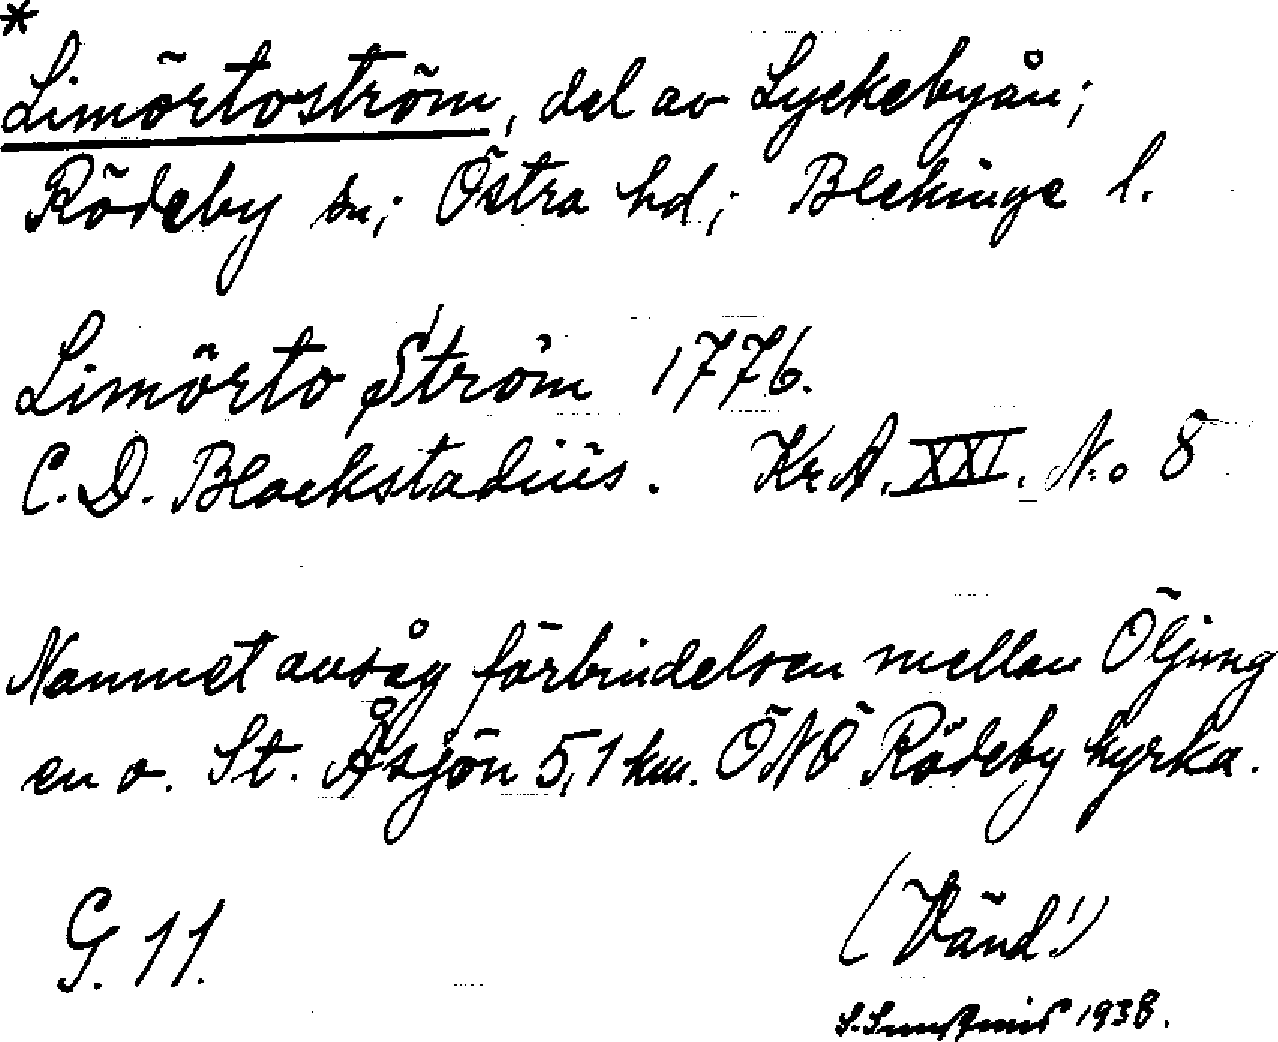 *
Limörtoström, del av Lyckebyån;
Rödeby sn; Östra hd; Blekinge l.
Limörto Ström 1776.
C. D. Blackstadius. Kr A. XXI. N.o 8
Namnet avsåg förbindelsen mellan Öljung
en o. St. Åsjön 5,1 km. ÖNÖ Rödeby kyrka.
G. 11.
(Vänd!)
1938.